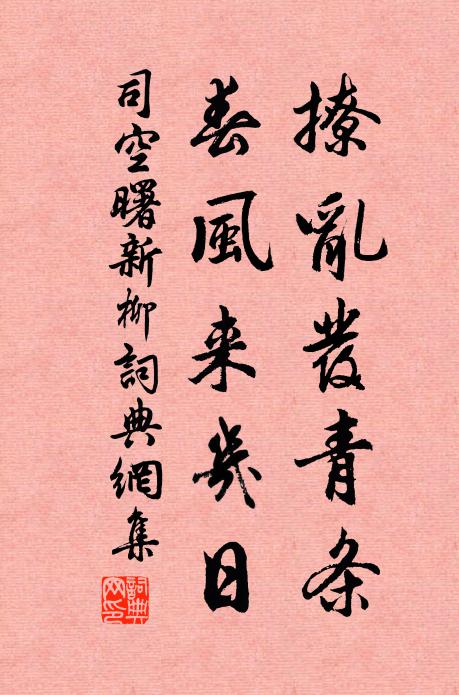 撩亂發青条
春風来幾日
司空曙新柳詞典網集
詞典网印